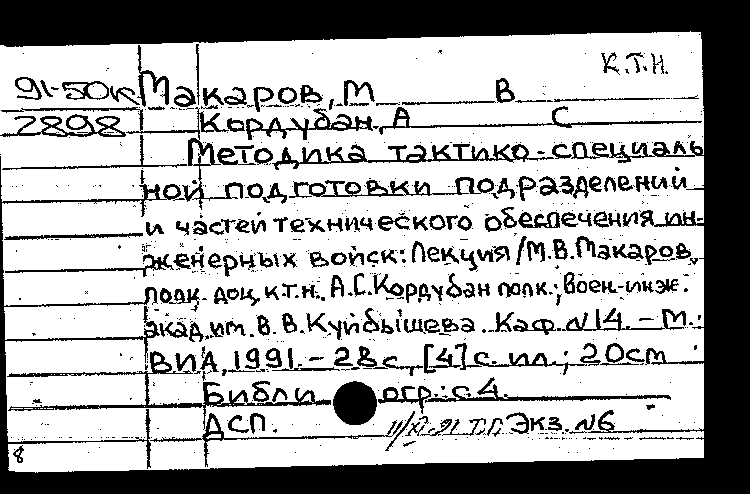 К.Т.Н.
91-50к Макаров, М В
2898 Кордубан, А С
Методика тактико-специаль
ной подготовки подразделений
и частей технического обеспечения ин-
женерных войск: Лекция /М.В.Макаров,
полк. доц. к.т.н., А.С.Кордубан полк.; Воен.-инж.
акад. им. В.В.Куйбышева. Каф. N14. – М.:
ВИА, 1991. – 28с., [4]с. ил.; 20см
Библиогр.: с.4.
ДСП. 11/XI-91 Т.П. Экз. N6
8